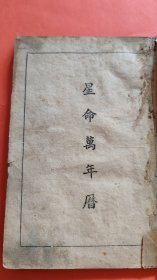 星命萬年曆